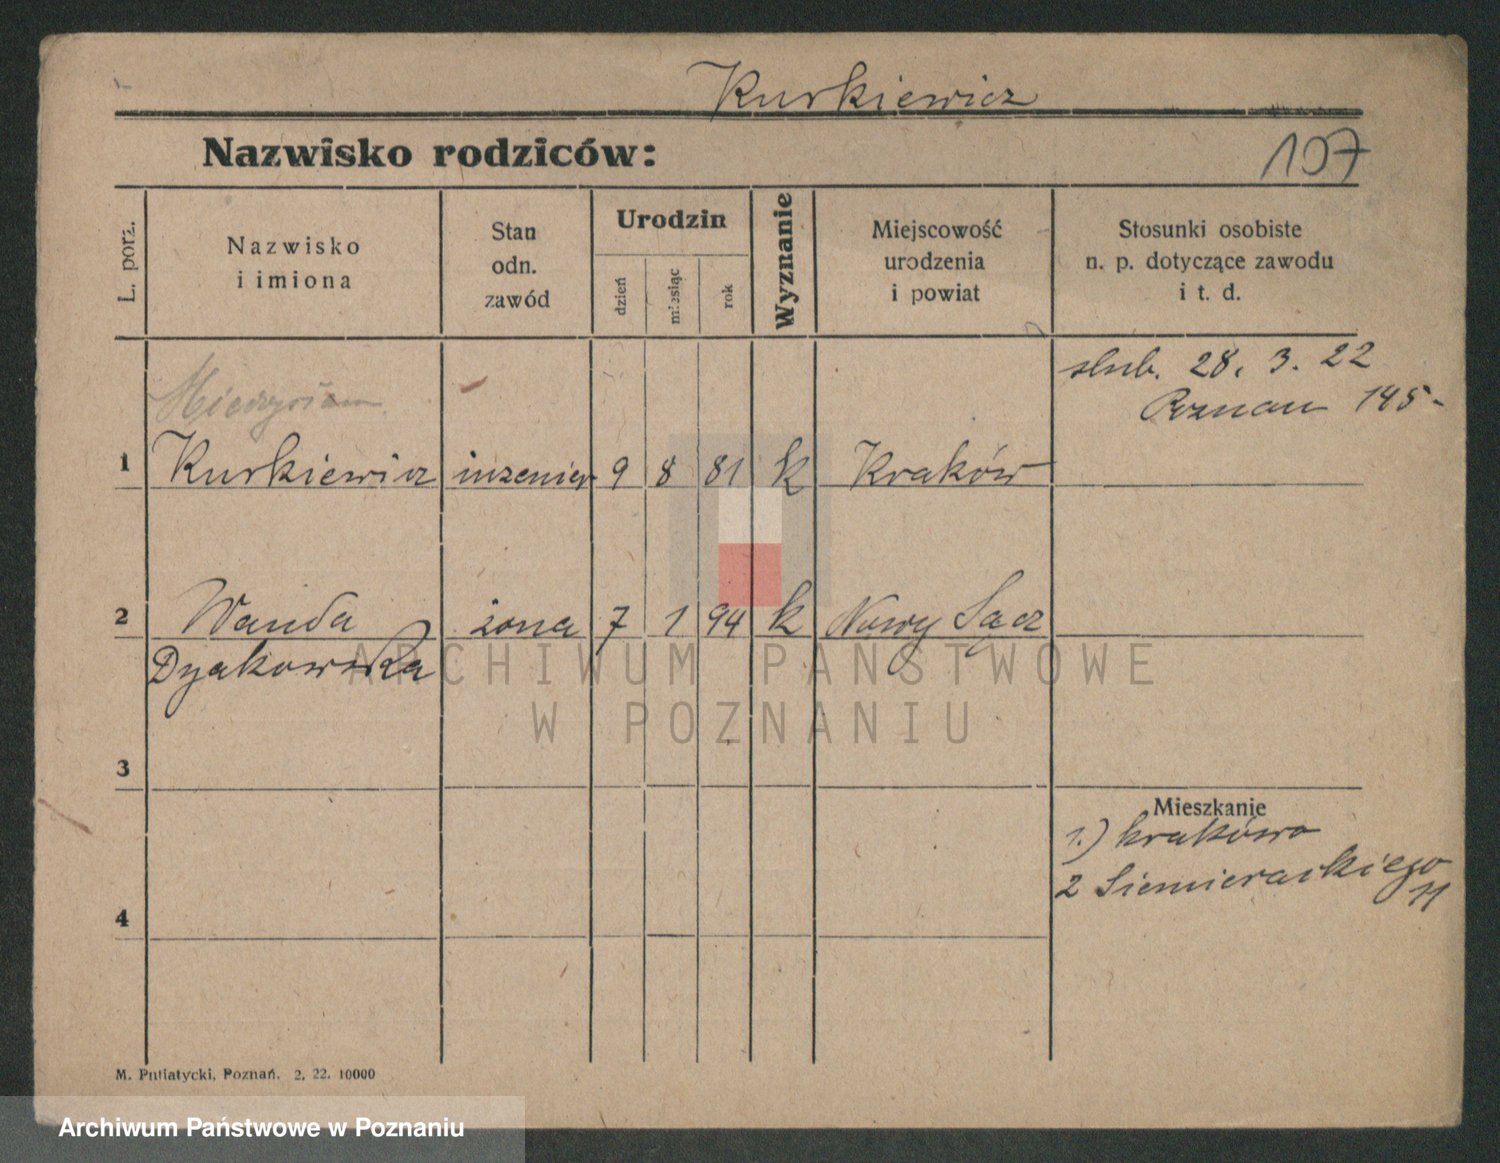 Kurkiewicz
Nazwisko rodziców:
107
L. porz.
Nazwisko
i imiona
Stan
odn.
zawód
Urodzin
dzień
miesiąc
rok
Wyznanie
Miejscowość
urodzenia
i powiat
Stosunki osobiste
n. p. dotyczące zawodu
i t. d.
slub. 28. 3. 22
Poznan 145-
1 Kurkiewicz inzenier 9 8 81 k Kraków
2 Wanda żona 7 1 94 k Nowy Sącz
Dyakowska
ARCHIWUM PAŃSTWOWE
W POZNANIU
3
Mieszkanie
1.) krakówo
2 Siemierackiego
11
4
M. Putiatycki, Poznań. 2. 22. 10000
Archiwum Państwowe w Poznaniu